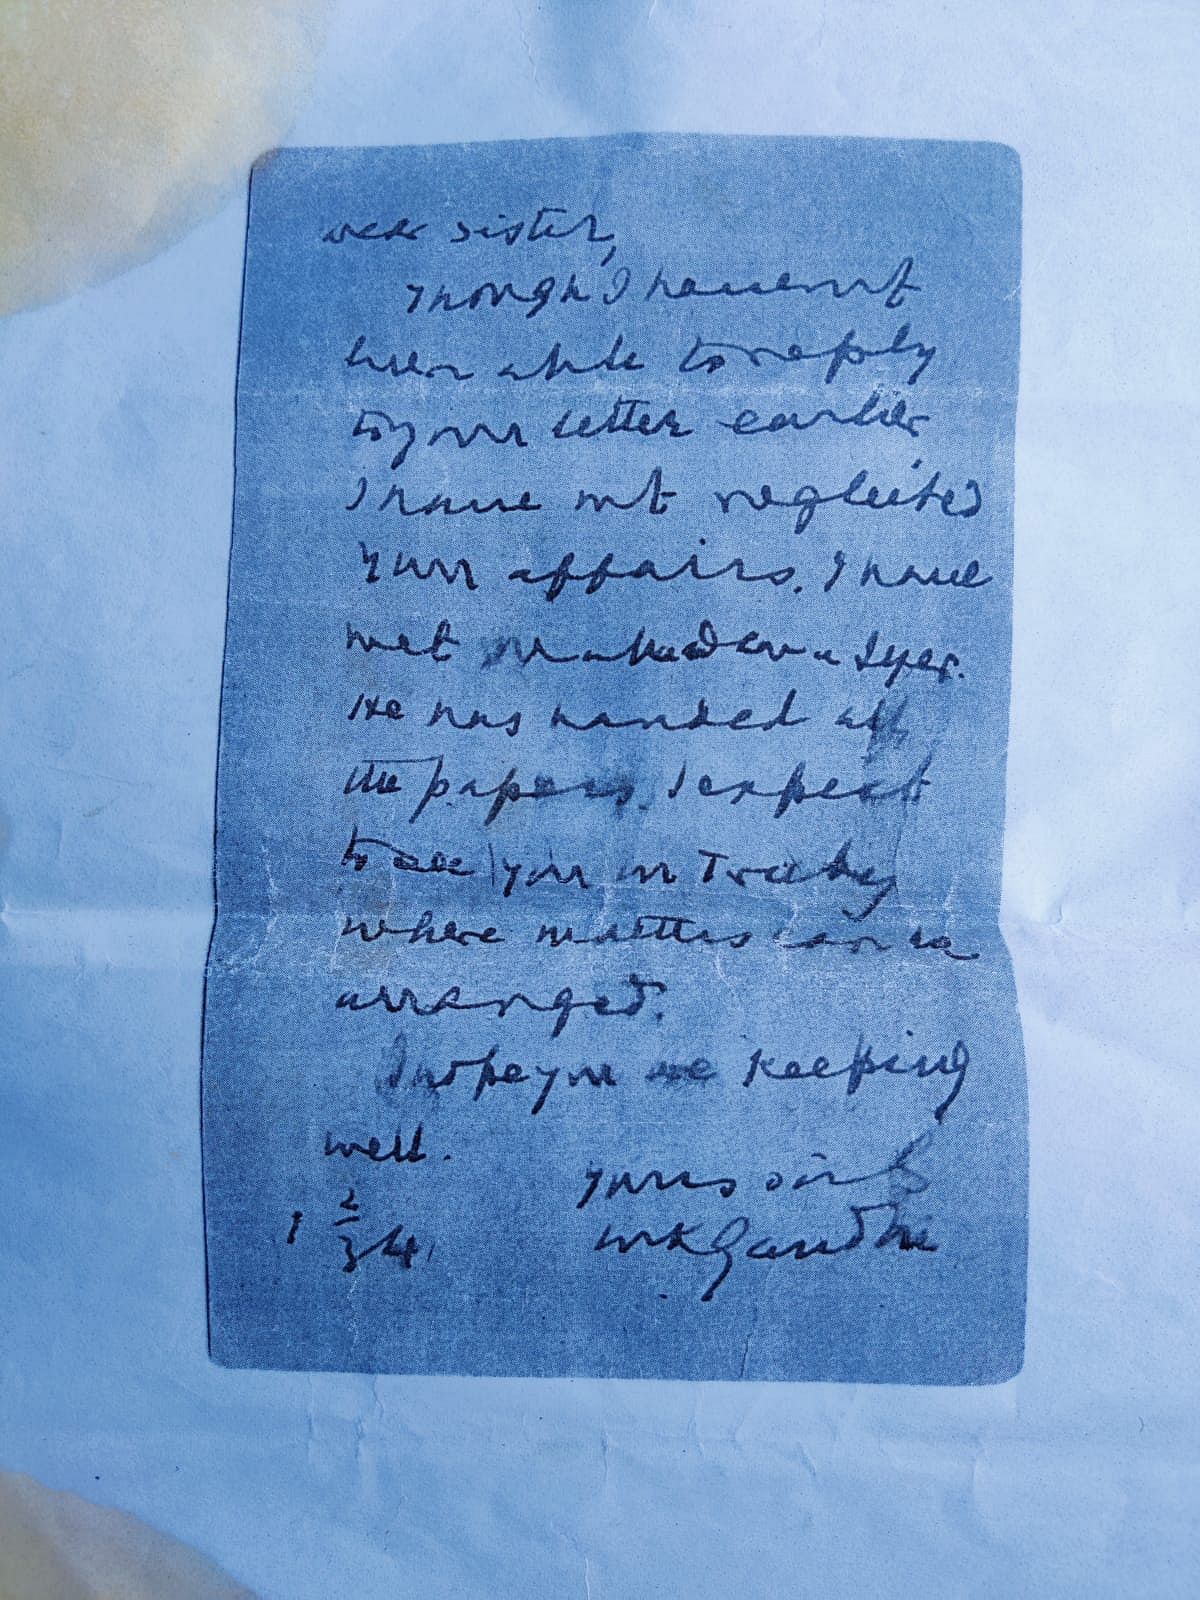 Dear sister,
Though I have not
been able to reply
to your letter earlier
I have not neglected
your affairs. I have
met Mahadeva Iyer.
He has handed all
the papers. I expect
to see you in
where matters can be
arranged.
I hope you are keeping
well.
yours sinly
MKGandhi